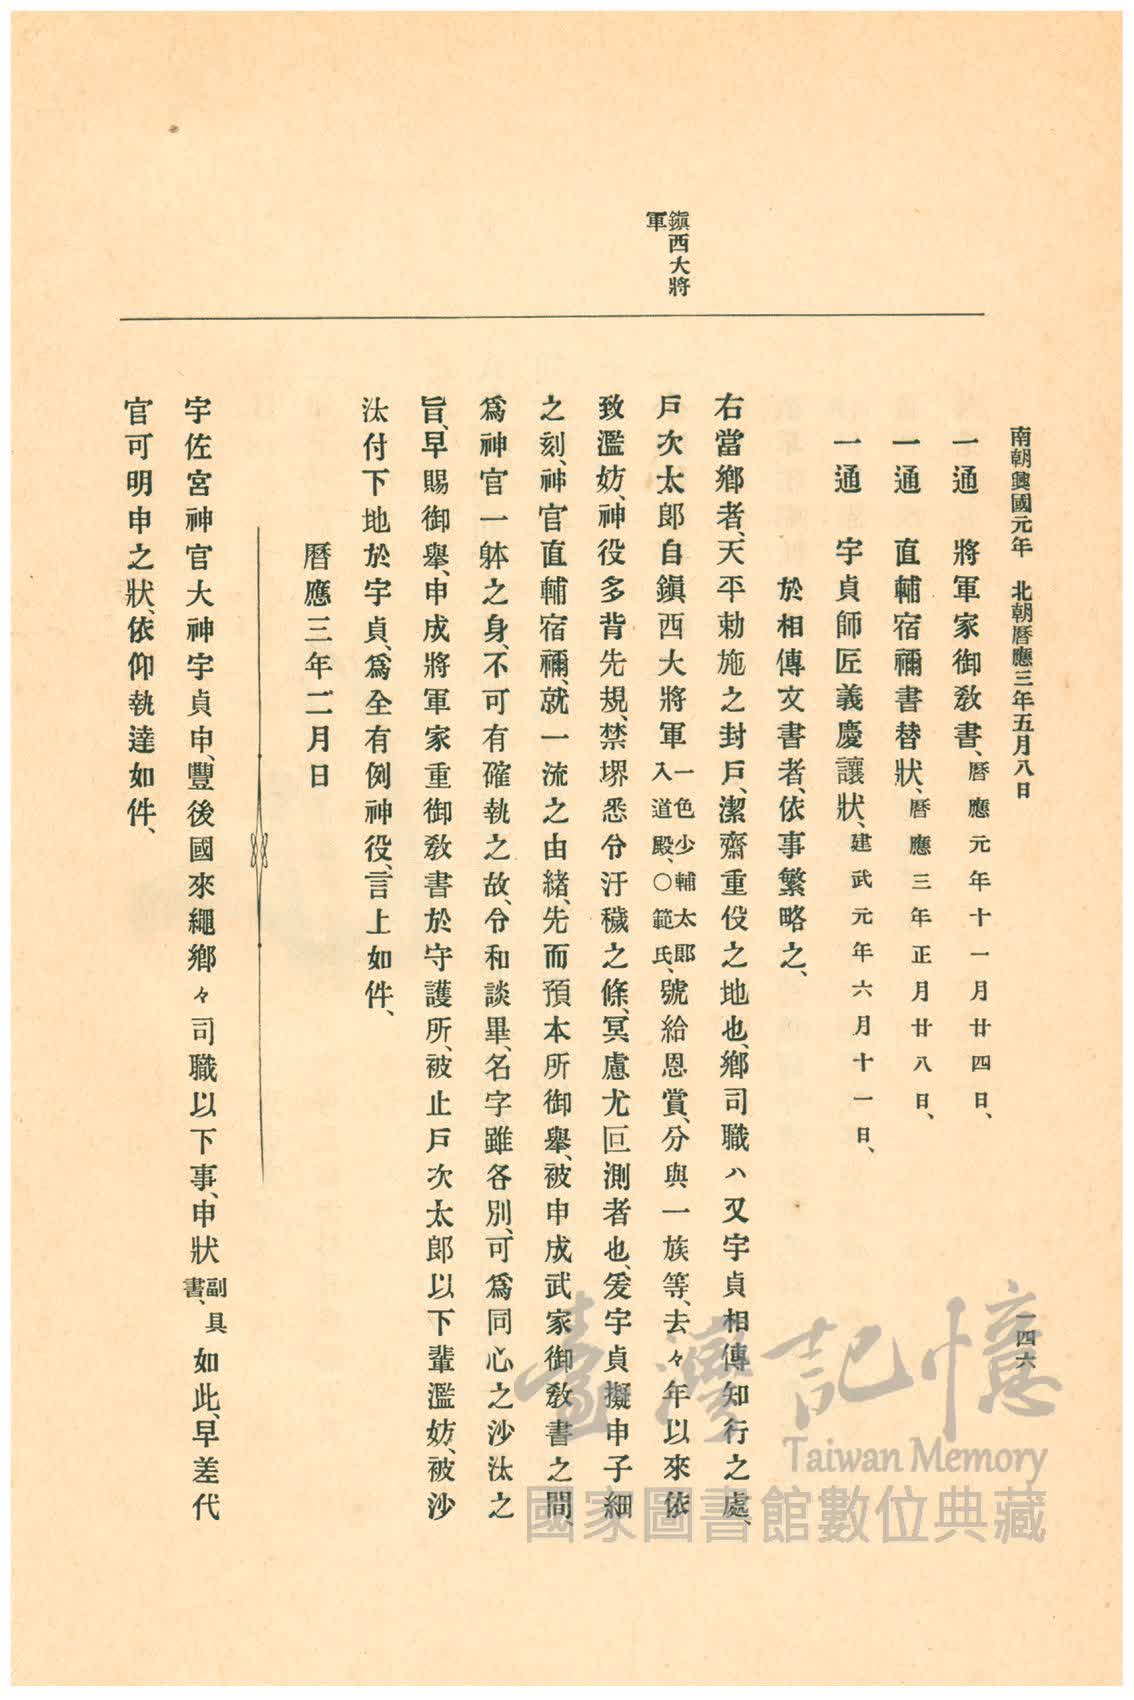 南朝興國元年　北朝曆應三年五月八日
一四六
鎭西大將
軍
一通　將軍家御敎書、曆應元年十一月廿四日、
一通　直輔宿禰書替狀、曆應三年正月廿八日、
一通　宇貞師匠義慶讓狀、建武元年六月十一日、
於相傳文書者、依事繁略之、
右當鄕者、天平勅施之封戶、潔齋重役之地也、鄕司職ハ又宇貞相傳知行之處、
戶次太郎自鎭西大將軍一色少輔太郎入道殿、○範氏、號給恩賞、分與一族等、去々年以來依
致濫妨、神役多背先規、禁堺悉令汙穢之條、冥慮尤叵測者也、爰宇貞擬申子細
之刻、神官直輔宿禰、就一流之由緖、先而預本所御擧、被申成武家御敎書之間、
爲神官一躰之身、不可有確執之故、令和談畢、名字雖各別、可爲同心之沙汰之
旨、早賜御擧、申成將軍家重御敎書於守護所、被止戶次太郎以下輩濫妨、被沙
汰付下地於宇貞、爲全有例神役、言上如件、
曆應三年二月日
宇佐宮神官大神宇貞申、豐後國來繩鄕々司職以下事、申狀副具書、如此、早差代
官可明申之狀、依仰執達如件、
臺灣記憶
Taiwan Memory
國家圖書館數位典藏